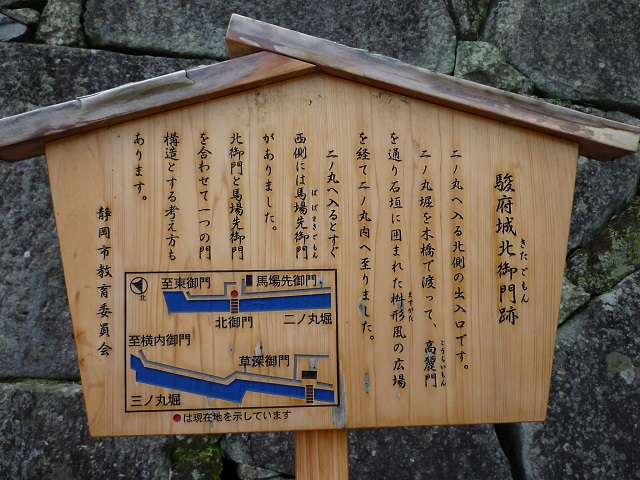 駿府城北御門跡
きたごもん
二ノ丸へ入る北側の出入口です。
二ノ丸堀を木橋で渡って、高麗門
こうらいもん
を通り石垣に囲まれた枡形風の広場
ますがた
を経て二ノ丸内へ至りました。
二ノ丸へ入るとすぐ
西側には馬場先御門
ばばさきごもん
がありました。
北御門と馬場先御門
を合わせて一つの門
構造とする考え方も
あります。
静岡市教育委員会
北
至東御門
馬場先御門
北御門
二ノ丸堀
至横内御門
草深御門
三ノ丸堀
●は現在地を示しています